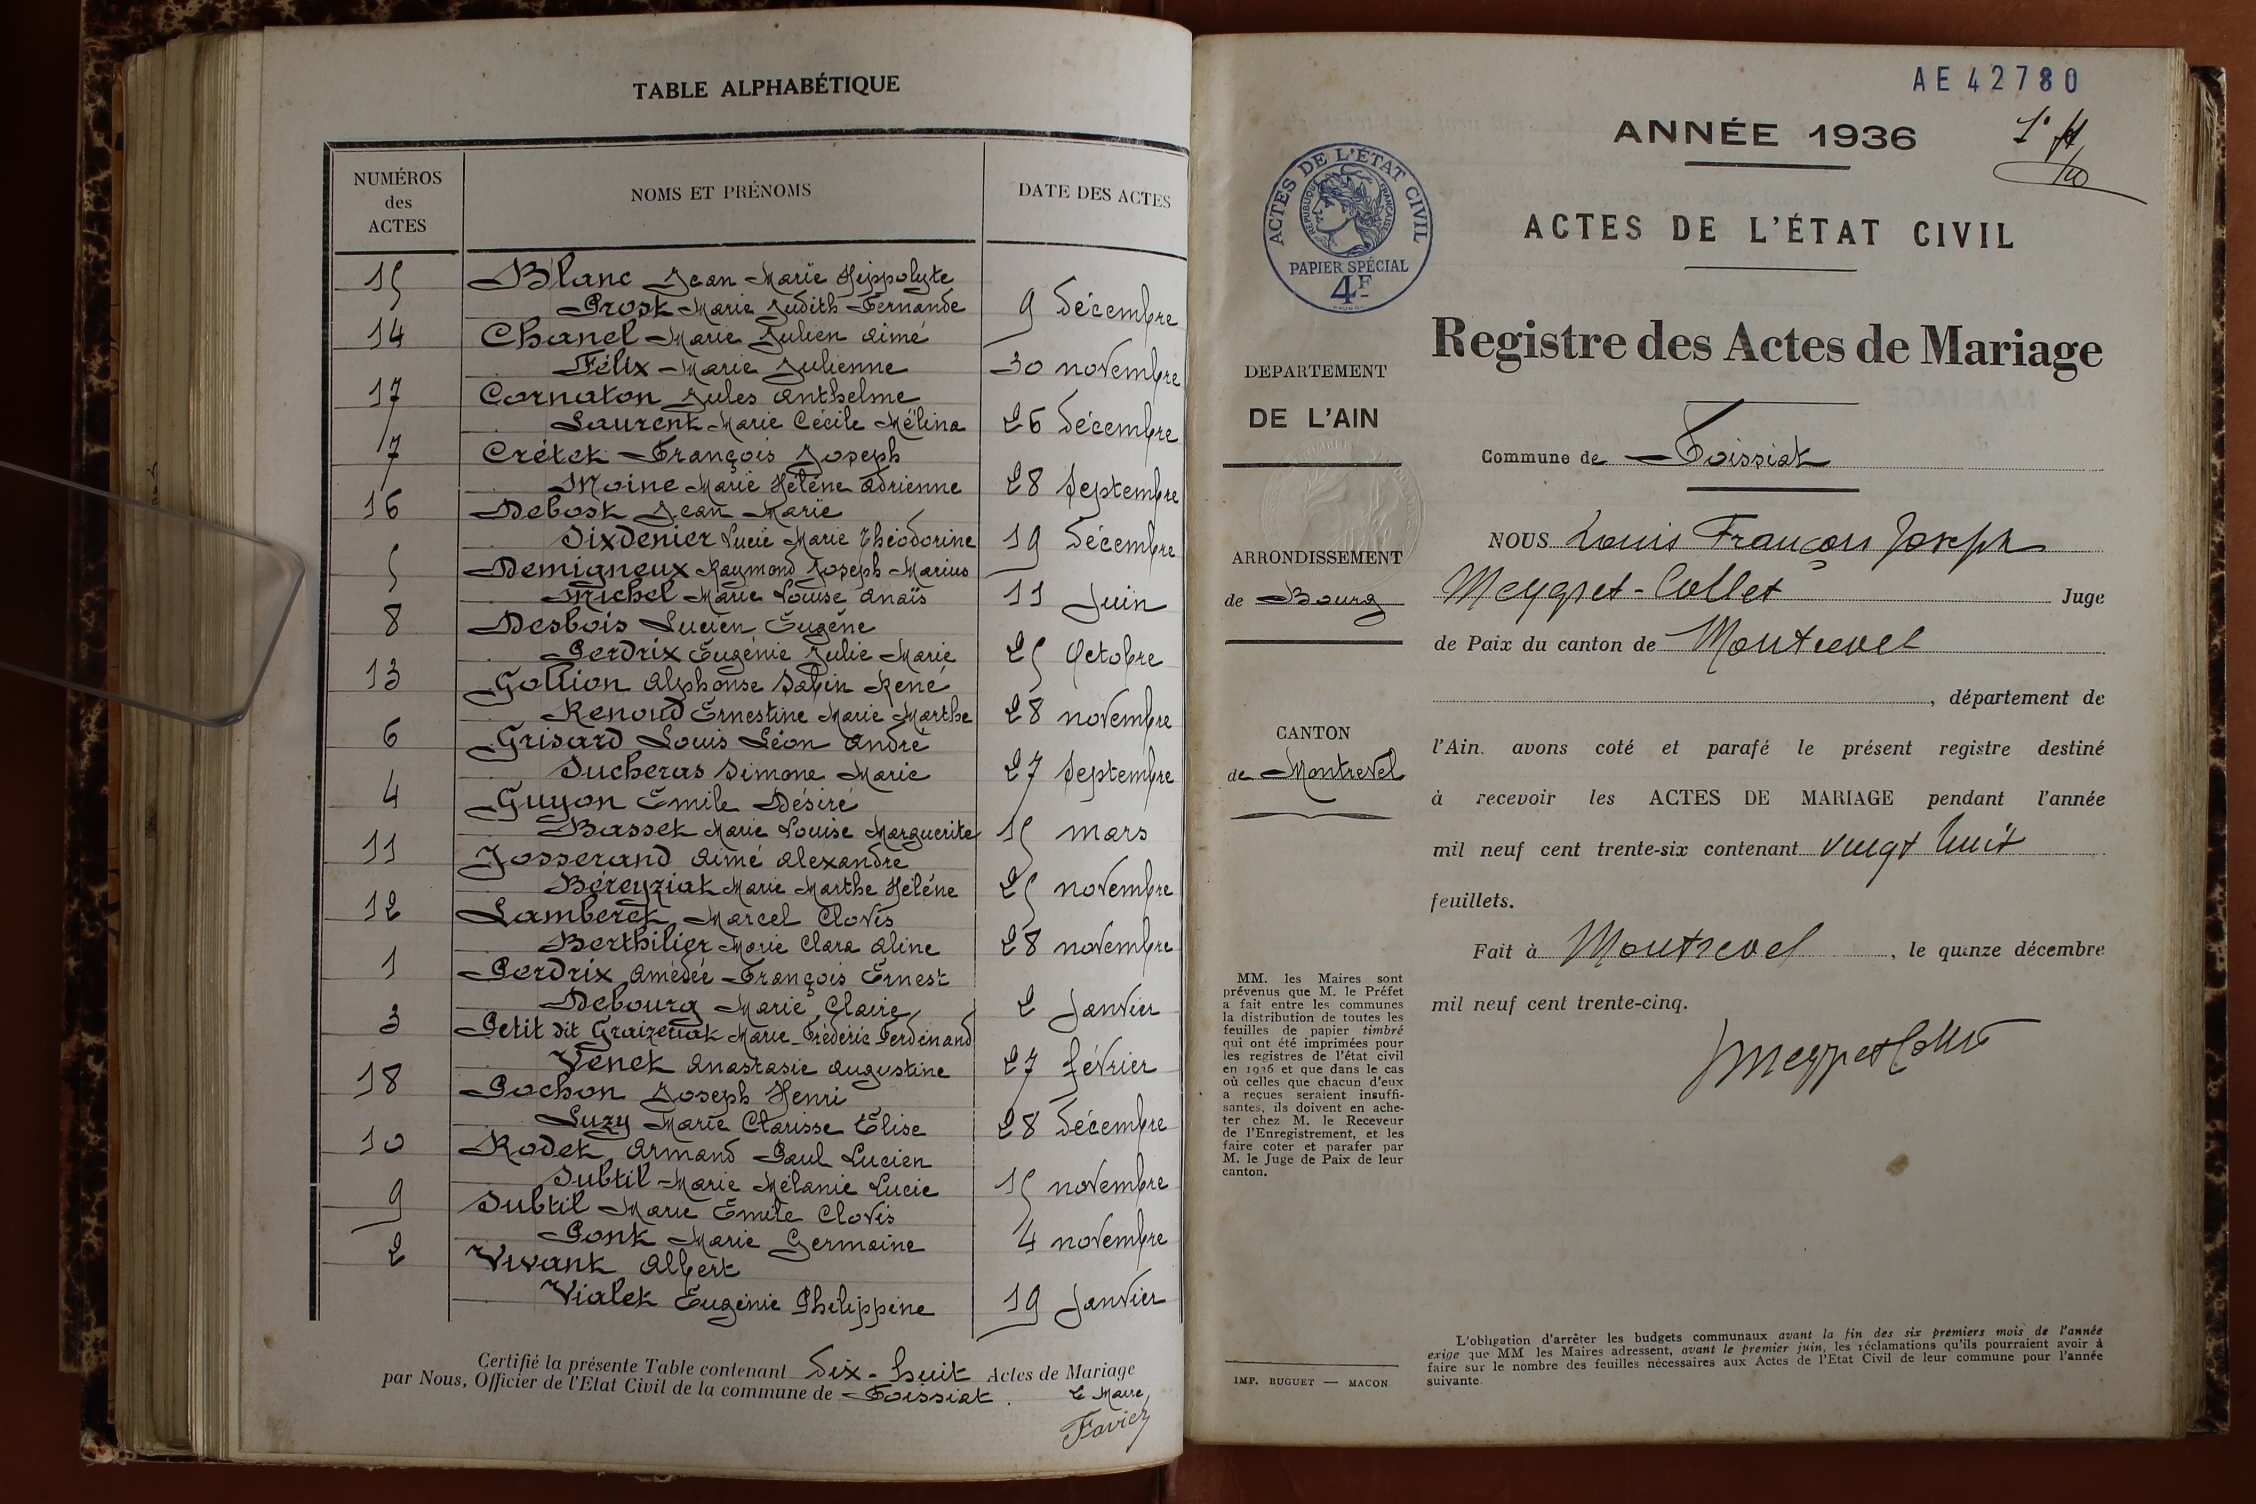 TABLE ALPHABÉTIQUE
NUMÉROS
des
ACTES
NOMS ET PRÉNOMS
DATE DES ACTES
15 Blanc Jean Marie Hippolyte
Prost Marie Judith Fernande 9 Décembre
14 Chanel Marie Julien Aimé
Félix Marie Julienne 30 novembre
17 Cornaton Jules Anthelme
Laurent Marie Cécile Mélina 26 Décembre
7 Crétet François Joseph
Moine Marie Hélène Adrienne 28 Septembre
16 Debost Jean Marie
Sixdenier Lucie Marie Théodorine 19 Décembre
5 Demigneux Raymond Joseph Marius
Michel Marie Louise Anaïs 11 Juin
8 Desbois Lucien Eugène
Perdrix Eugénie Julie Marie 25 Octobre
13 Gollion Alphonse Sabin René
Renoud Ernestine Marie Marthe 28 novembre
6 Grisard Louis Léon André
Sucheras Simone Marie 27 Septembre
4 Guyon Emile Désiré
Basset Marie Louise Marguerite 15 mars
11 Josserand Aimé Alexandre
Béreyziat Marie Marthe Hélène 25 novembre
12 Lambert Marcel Clovis
Berthilier Marie Clara Aline 28 novembre
1 Perdrix Amédée François Ernest
Debourg Marie Claire 2 Janvier
3 Petit dit Graizeliat Marie Fréderic Ferdinand
Venet Anastasie Augustine 27 février
18 Pochon Joseph Henri
Luzy Marie Clarisse Elise 28 Décembre
10 Rodet Armand Paul Lucien
Subtil Marie Mélanie Lucie 15 novembre
9 Subtil Marie Emile Clovis
Pont Marie Germaine 4 novembre
2 Vivant Albert
Vialet Eugénie Philippine 19 Janvier
Certifié la présente Table contenant Dix-huit Actes de Mariage
par Nous, Officier de l'Etat Civil de la commune de Foissiat.
Le Maire,
Favier
AE 42780
ANNÉE 1936
ACTES DE L'ÉTAT CIVIL
RÉPUBLIQUE FRANÇAISE
PAPIER SPÉCIAL
4F
ACTES DE L'ÉTAT CIVIL
Registre des Actes de Mariage
DEPARTEMENT
DE L'AIN
Commune de Foissiat
ARRONDISSEMENT
de Bourg
CANTON
de Montrevel
NOUS Louis François Joseph
Meygret-Collet Juge
de Paix du canton de Montrevel
, département de
l'Ain. avons coté et parafé le présent registre destiné
à recevoir les ACTES DE MARIAGE pendant l'année
mil neuf cent trente-six contenant vingt huit
feuillets.
Fait à Montrevel, le quinze décembre
mil neuf cent trente-cinq.
Meygret Collet
MM. les Maires sont
prévenus que M. le Préfet
a fait entre les communes
la distribution de toutes les
feuilles de papier timbré
qui ont été imprimées pour
les registres de l'état civil
en 1936 et que dans le cas
où celles que chacun d'eux
a reçues seraient insuffi-
santes, ils doivent en ache-
ter chez M. le Receveur
de l'Enregistrement, et les
faire coter et parafer par
M. le Juge de Paix de leur
canton.
IMP. BUGUET — MACON
L'obligation d'arrêter les budgets communaux avant la fin des six premiers mois de l'année
exige que MM les Maires adressent, avant le premier juin, les réclamations qu'ils pourraient avoir à
faire sur le nombre des feuilles nécessaires aux Actes de l'Etat Civil de leur commune pour l'année
suivante.